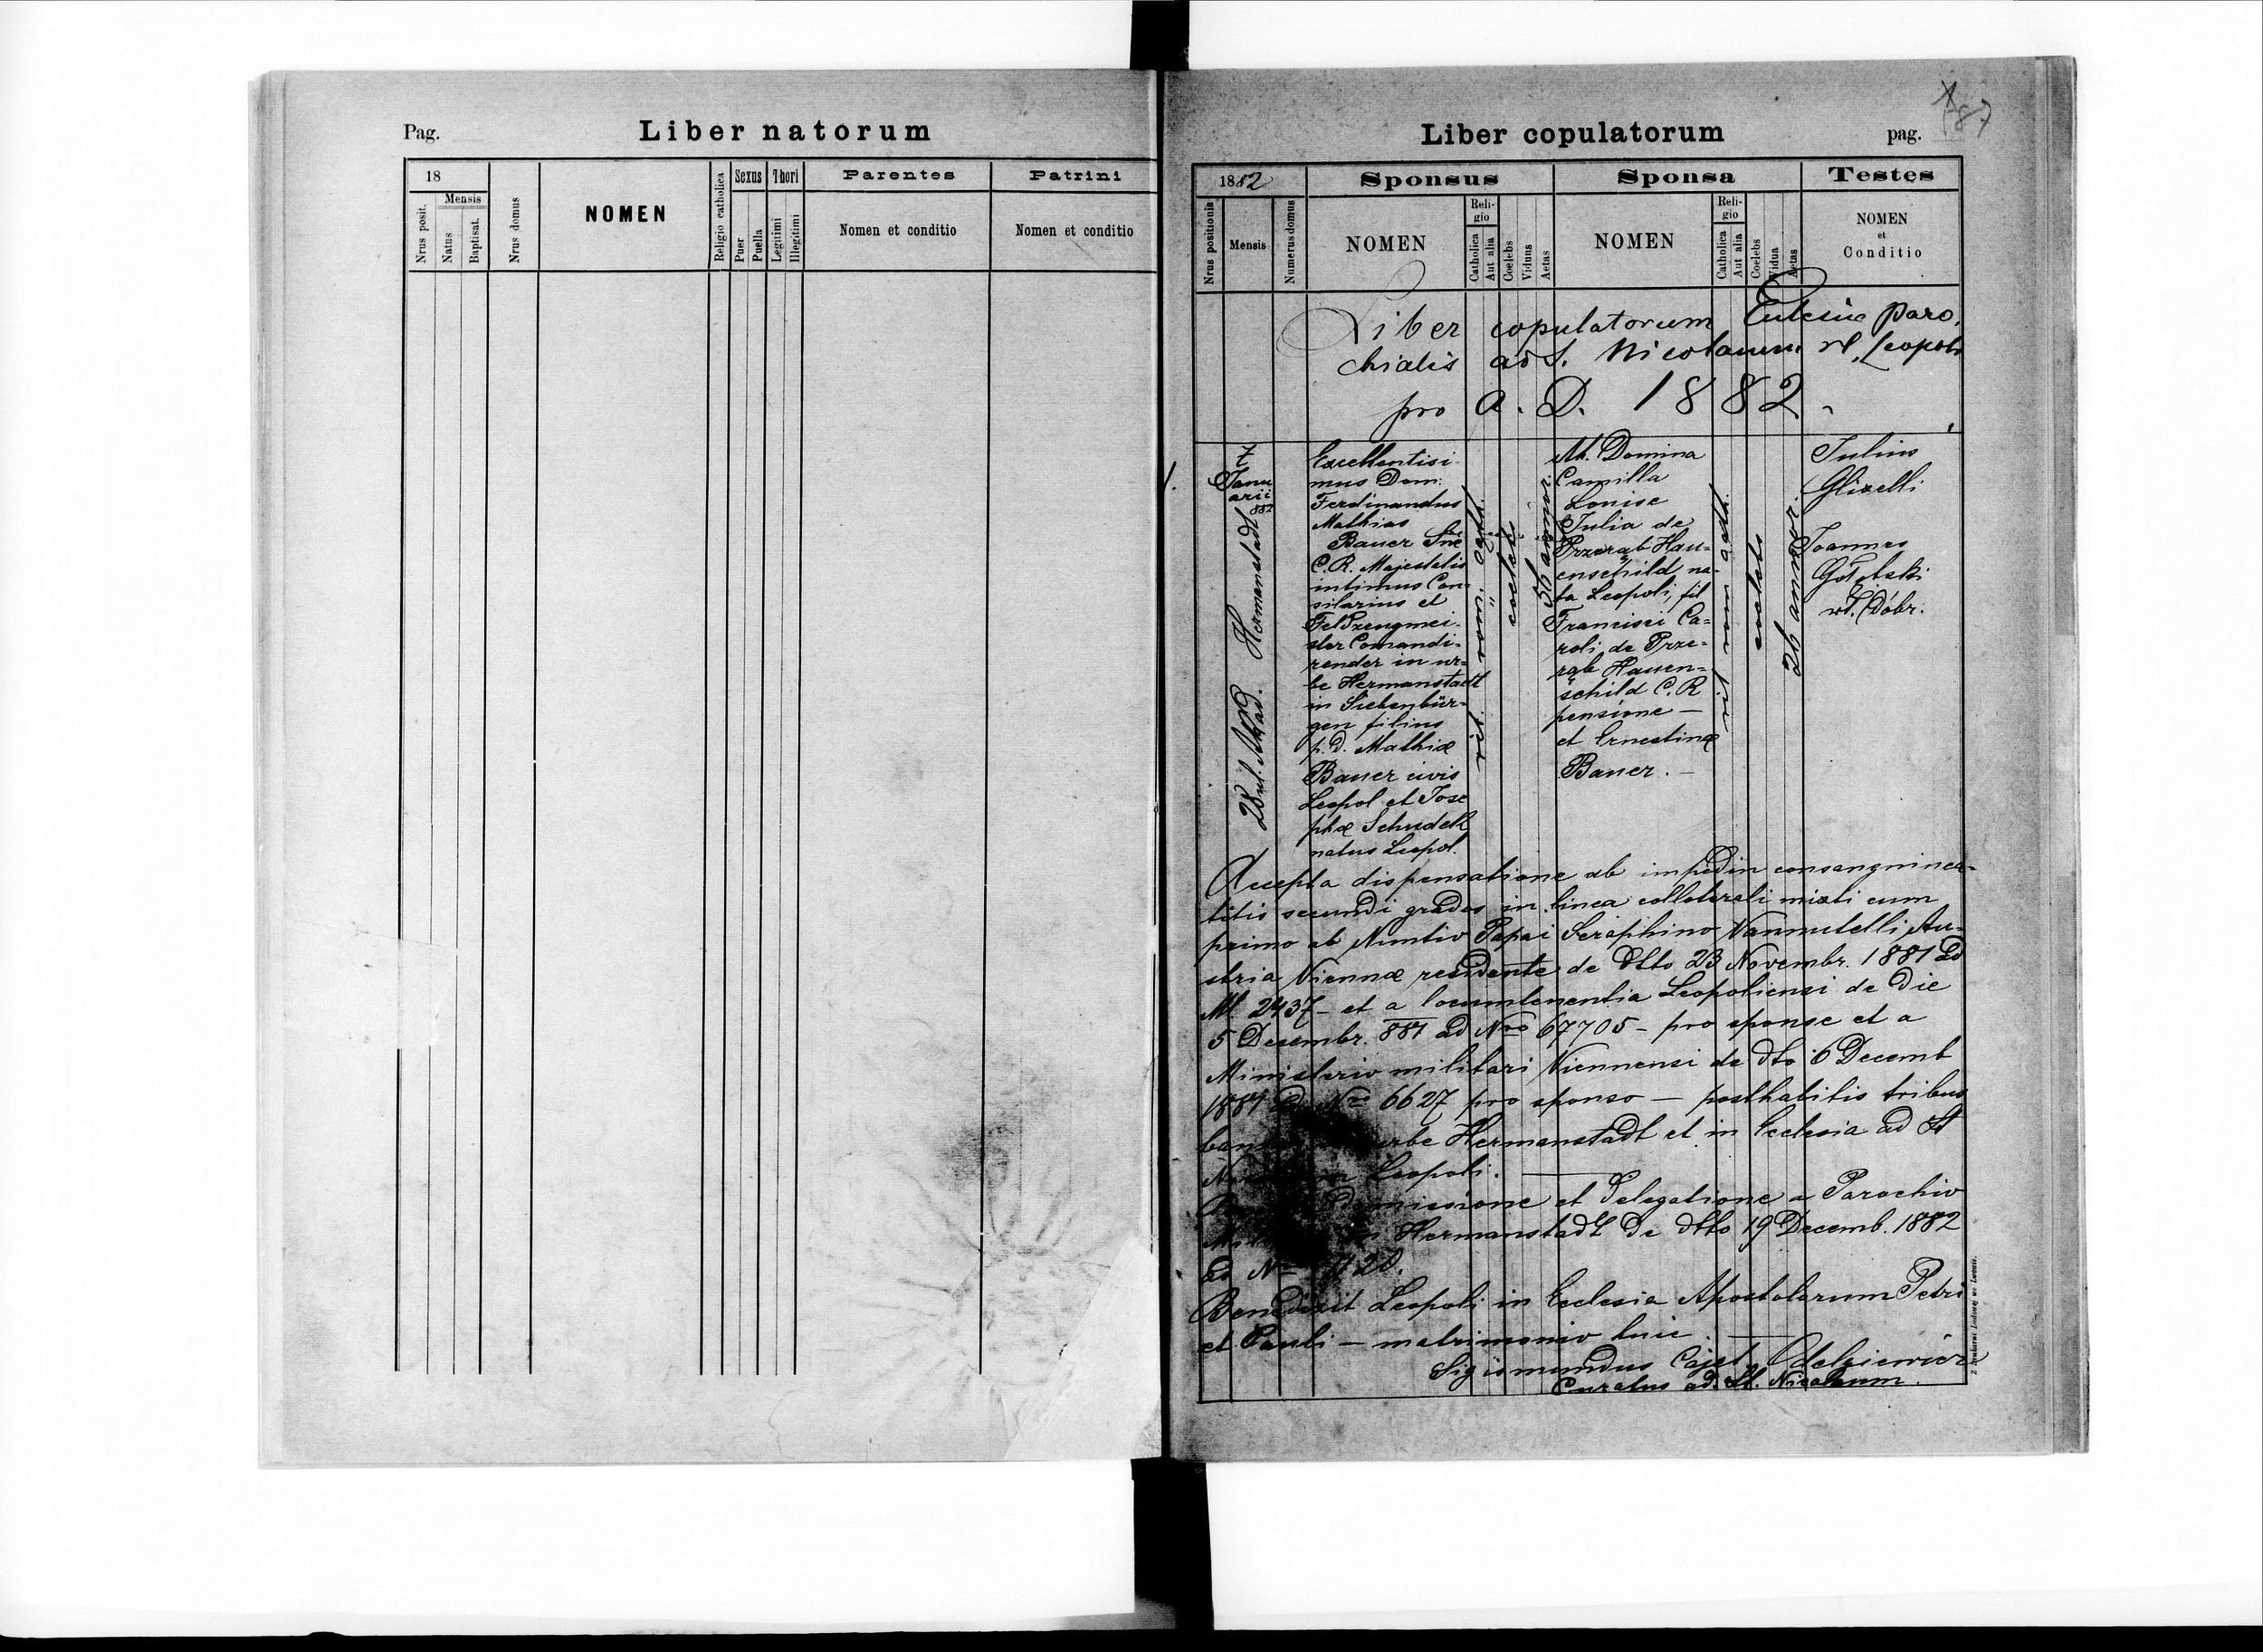 Pag.
Liber natorum
18
Mensis
Nrus posit.
Natus
Baptisat.
Nrus domus
NOMEN
Religio catholica
Sexus
Puer
Puella
Thori
Legitimi
Illegitimi
Parentes
Nomen et conditio
Patrini
Nomen et conditio
Liber copulatorum
pag.
187
1882
Nrus positionis
Mensis
Numerus domus
Sponsus
NOMEN
Religio
Catholica
Aut alia
Coelebs
Viduus
Aetas
Sponsa
NOMEN
Religio
Catholica
Aut alia
Coelebs
Vidua
Aetas
Testes
NOMEN
et
Conditio
Liber copulatorum Eclesiæ paro
chialis ad S. Nicolaum Leopoli
pro A. D. 1882
1.
Janu
arii
882
28 ul. Akad. Hermanstadt
Excellentisi
mus Dom.
Ferdinandus
Mathias
Bauer Sue
C. R. Majestatis
intimus Con=
siliarius et
Feldzeugmei
ster Comandi=
render in ur=
be Hermanstadt
in Siebenbür=
gen filius
p. D. Mathiæ
Bauer civis
Leopol et Jose
phæ Schudek
natus Leopol.
coelebs
56 annor.
M. Domina
Camilla
Louise
Julia de
Przerąb Hau=
enschild na=
ta Leopoli, fil
Francisci Ca=
roli de Prze=
rąb Hauen=
schild C. R
pensione —
et Ernestinæ
Bauer. —
coelebs
26 annor.
Julius
Glixelli
Joannes
Gołębski
wł. dóbr.
Accepta dispensatione ab impedim consanguinea=
titis secundi gradus in linea collaterali mixti cum
primo ab Nuntio Papai Seraphino Vannutelli Au=
stria Viennæ residente de dtto 23 Novembr. 1881 ad
2437 — et a locumtenentia Leopoliensi de die
5 Desembr. 881 ad Nro 67705 — pro sponse et a
Ministerio militari Viennensi de dto 6 Decemb
1881 ad Nro 6627 pro sponso — posthabitis tribus
urbe Hermanstadt et in Ecclesia ad St
Leopoli. —
missione et delegatione a Parochio
Hermanstadt de dtto 19 Decemb. 1882
ad No
Benedixit Leopoli in Ecclesia Apostolorum Petri
et Pauli — matrimonio huic. —
Sigismundus Cajet. Odelgiewicz
Curatus ad St. Nicolaum.